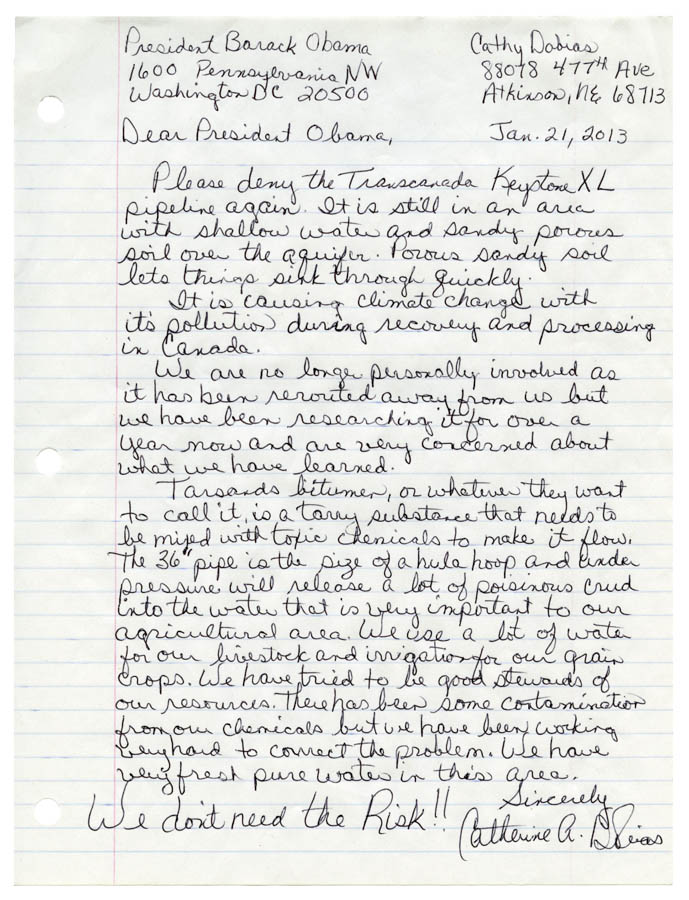 President Barack Obama
1600 Pennsylvania NW
Washington DC 20500
Cathy Dobias
88078 477th Ave
Atkinson, NE 68713
Dear President Obama,
Jan. 21, 2013
Please deny the Transcanada Keystone XL
pipeline again. It is still in an area
with shallow water and sandy porous
soil over the aquifer. Porous sandy soil
lets things sink through quickly.
It is causing climate change with
it's pollution during recovery and processing
in Canada.
We are no longer personally involved as
it has been rerouted away from us but
we have been researching it for over a
year now and are very concerned about
what we have learned.
Tarsands bitumen, or whatever they want
to call it, is a tarry substance that needs to
be mixed with toxic chemicals to make it flow.
The 36" pipe is the size of a hula hoop and under
pressure will release a lot of poisinous crud
into the water that is very important to our
agricultural area. We use a lot of water
for our livestock and irrigation for our grain
crops. We have tried to be good stewards of
our resources. There has been some contamination
from our chemicals but we have been working
very hard to correct the problem. We have
very fresh pure water in this area.
Sincerely
We don't need the Risk!!
Catherine A. Dobias